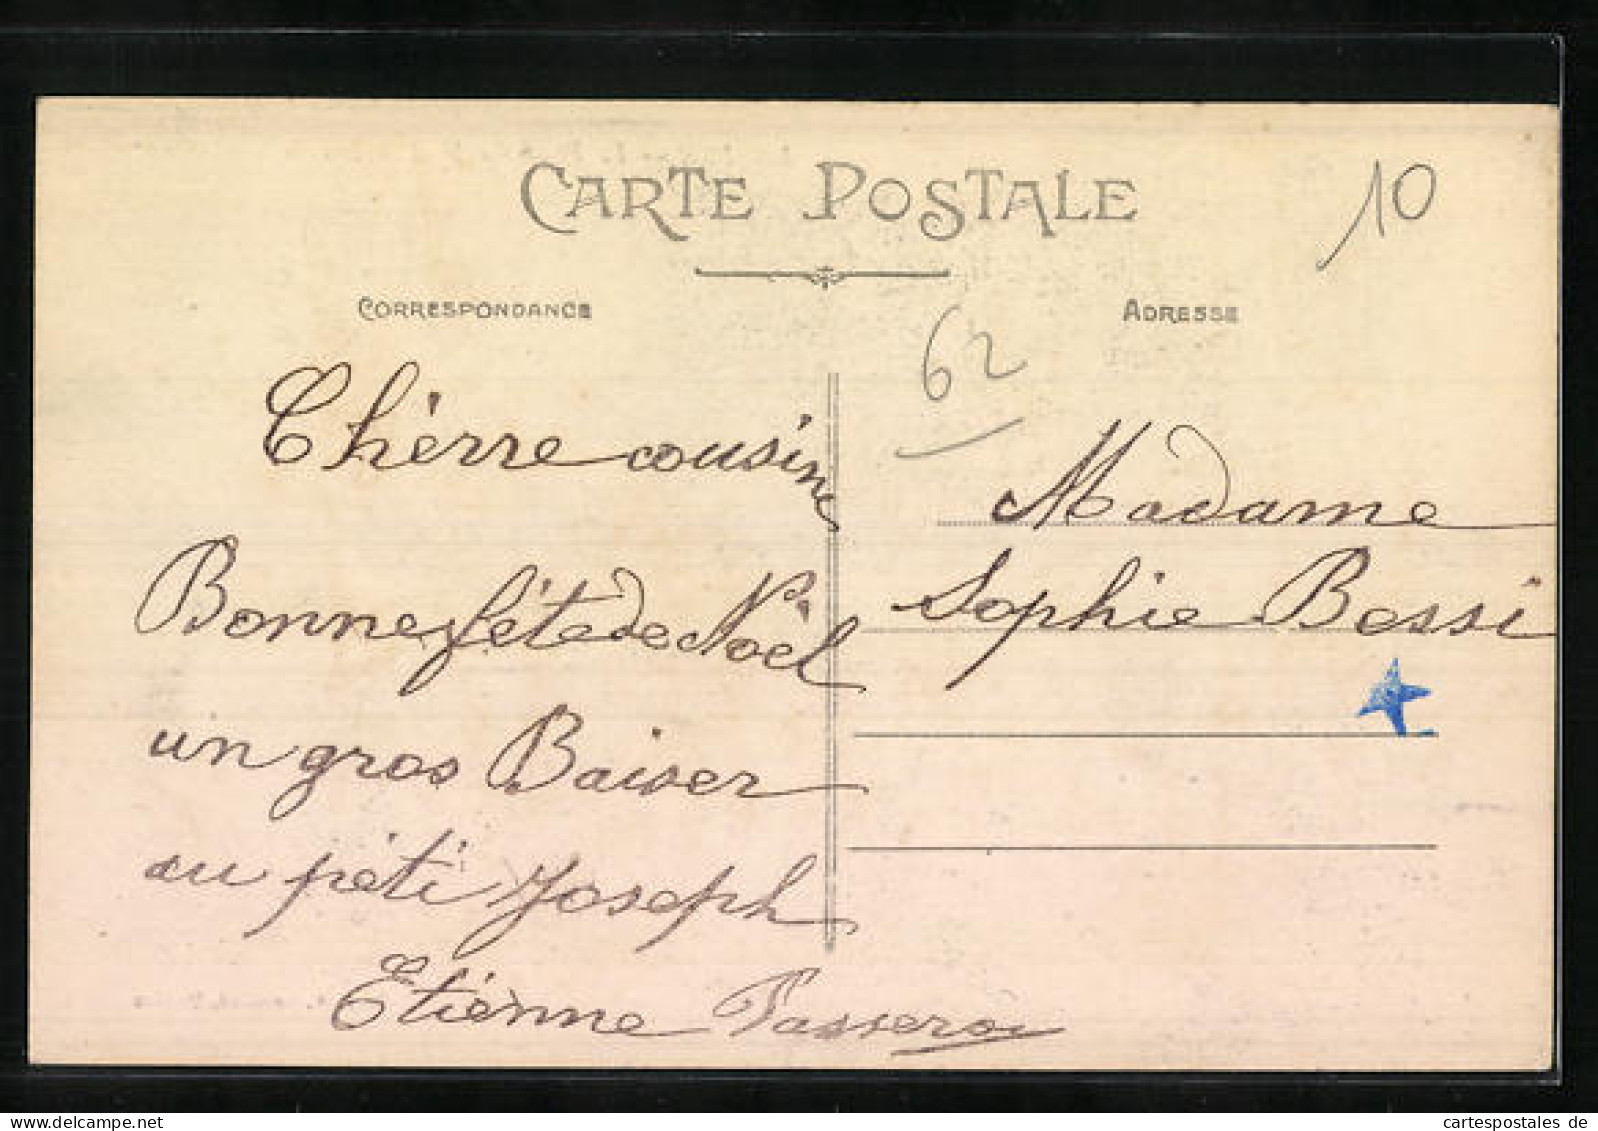 CARTE POSTALE
10
CORRESPONDANCE
ADRESSE
62
Chèrre cousine
Bonne féte de Noèl
un gros Baiser
au pèti Joseph
Etiènne Passeron
Madame
Sophie Bessi
cartespostales de